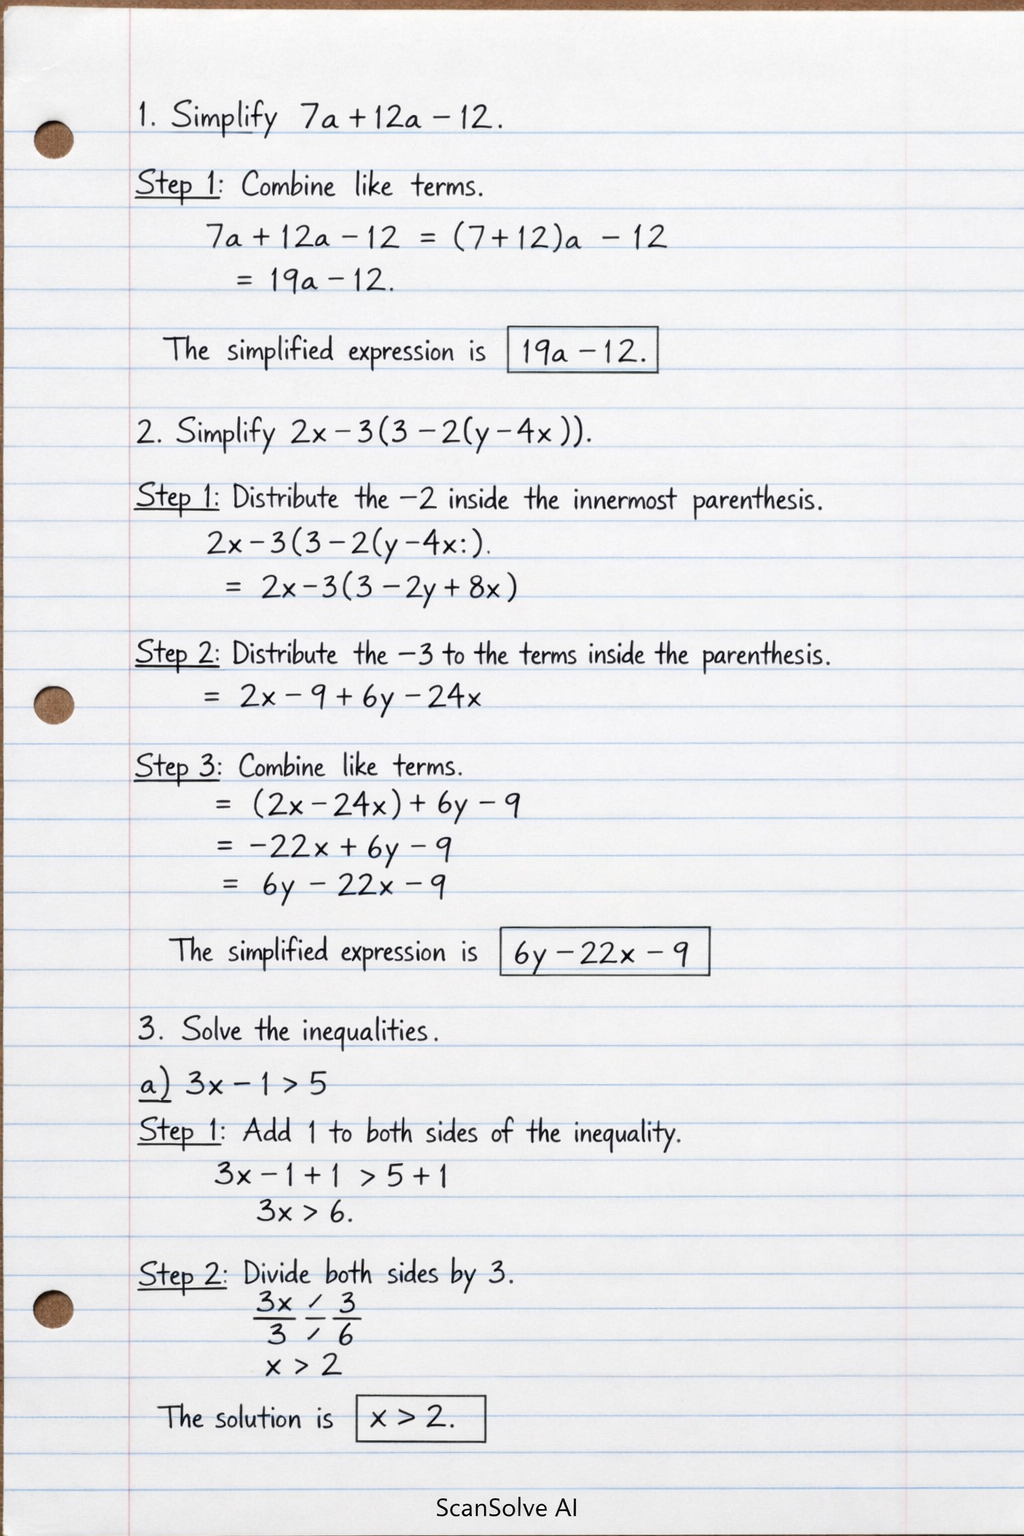 1. Simplify 7a + 12a − 12.
Step 1: Combine like terms.
7a + 12a − 12 = (7+12)a − 12
= 19a − 12.
The simplified expression is 19a − 12.
2. Simplify 2x − 3(3 − 2(y − 4x)).
Step 1: Distribute the −2 inside the innermost parenthesis.
2x − 3(3 − 2(y − 4x:).
= 2x − 3(3 − 2y + 8x)
Step 2: Distribute the −3 to the terms inside the parenthesis.
= 2x − 9 + 6y − 24x
Step 3: Combine like terms.
= (2x − 24x) + 6y − 9
= −22x + 6y − 9
= 6y − 22x − 9
The simplified expression is 6y − 22x − 9
3. Solve the inequalities.
a) 3x − 1 > 5
Step 1: Add 1 to both sides of the inequality.
3x − 1 + 1 > 5 + 1
3x > 6.
Step 2: Divide both sides by 3.
3x 3
3 6
x > 2
The solution is x > 2.
ScanSolve AI